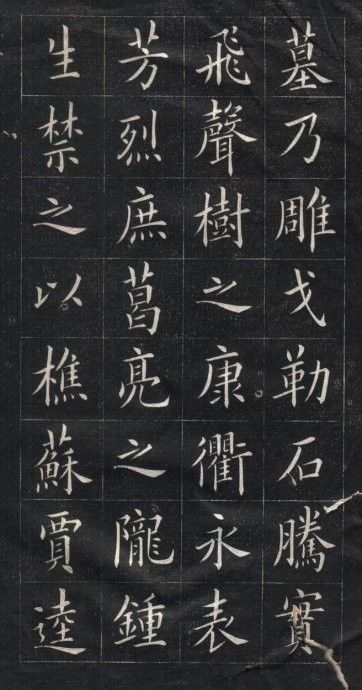 墓乃雕戈勒石騰實
飛聲樹之康衢永表
芳烈庶葛亮之隴鍾
生禁之以樵蘇賈逵